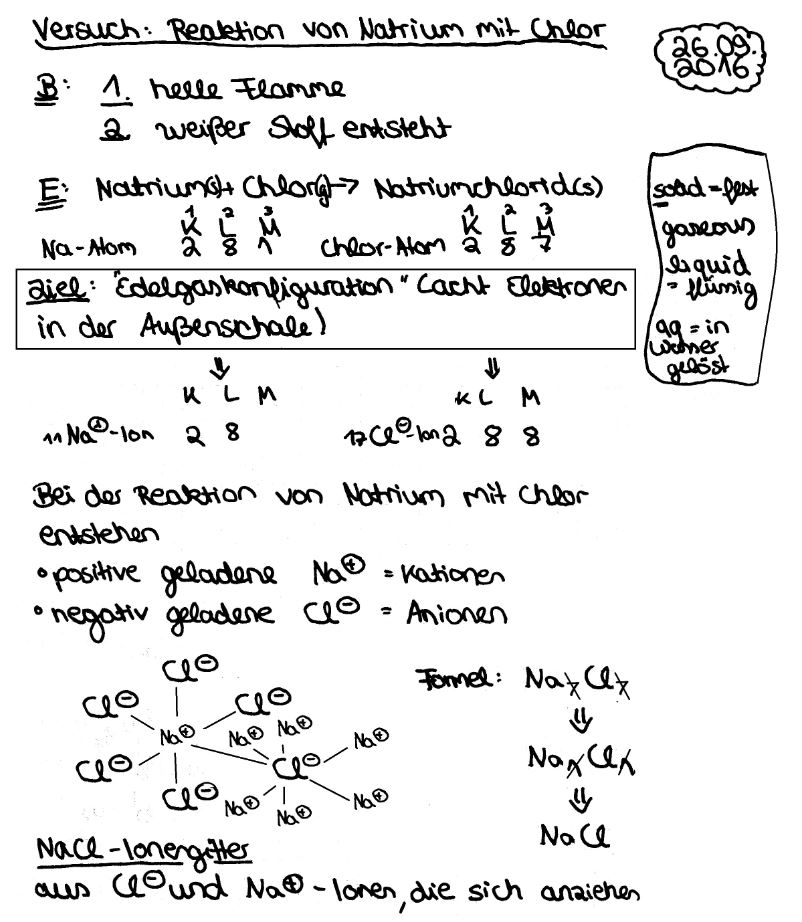 Versuch: Reaktion von Natrium mit Chlor
26.09.
2016
B: 1. helle Flamme
2 weißer Stoff entsteht
E: Natrium(s)+ Chlor(g)-> Natriumchlorid(s)
1 2 3 1 2 3
K L M K L M
Na-Atom 2 8 1 Chlor-Atom 2 8 7
solid = fest
gaseous
liquid
= flüssig
aq = in
Wasser
gelöst
Ziel: "Edelgaskonfiguration" (acht Elektronen
in der Außenschale)
⇓ ⇓
K L M K L M
11Na⊕-Ion 2 8 17Cl⊖-Ion 2 8 8
Bei der Reaktion von Natrium mit Chlor
entstehen
• positive geladene Na⊕ = Kationen
• negativ geladene Cl⊖ = Anionen
Cl⊖
Cl⊖ Cl⊖
Na⊕ Na⊕ Na⊕ Na⊕
Cl⊖ Cl⊖
Cl⊖ Na⊕ Na⊕ Na⊕
Formel: NaxClx
⇓
Na1Cl1
⇓
NaCl
NaCl-Ionengitter
aus Cl⊖ und Na⊕-Ionen, die sich anziehen